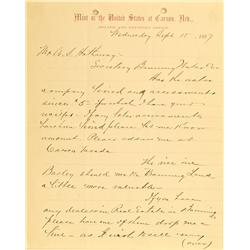 Mint of the United States at Carson, Nev.
Wednesday Sept 15" 1897
Mr. A. L. Hathaway
Secretary Banning Water Co
Has the water
company levied any assessments
since "5" for which I have your
receipts. If any later assessments
have been levied please let me know
amount. Please address me at
Carson Nevada
The rise in
Barley should make Banning Land
a little more valuable.
If you have
any dealers in Real Estate in Banning
please have one of them drop me a
line as I wish to sell my
(over)